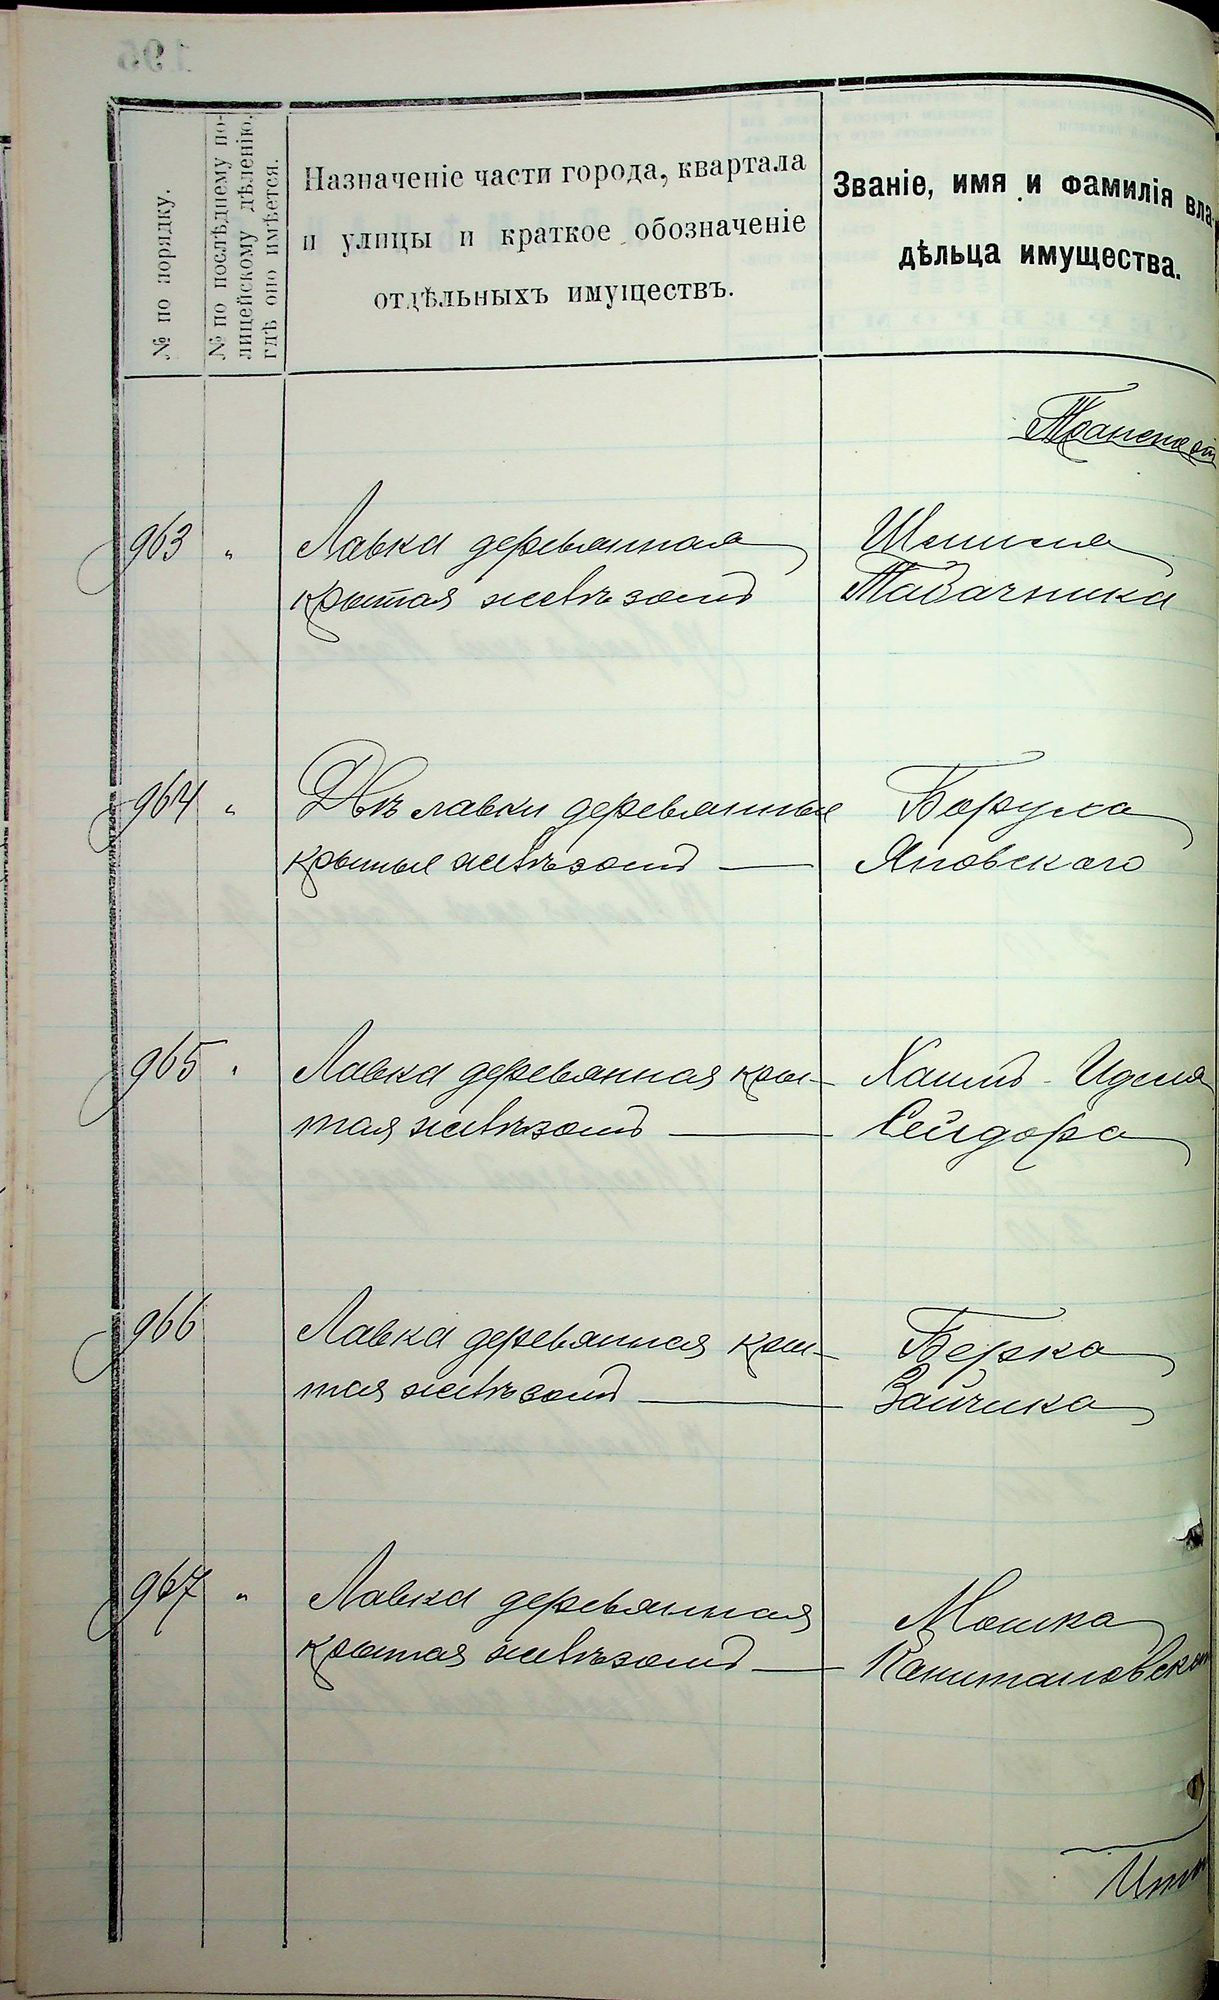 № по порядку.
№ по послѣднему по-
лицейскому дѣленію,
гдѣ оно имѣется.
Назначеніе части города, квартала
и улицы и краткое обозначеніе
отдѣльныхъ имуществъ.
Званіе, имя и фамилія вла-
дѣльца имущества.
963 " Лавка деревянная
крытая желѣзомъ
Табачника
964 " Двѣ лавки деревянные
крытые желѣзомъ —
Боруха
Яновского
965 " Лавка деревянная кры-
тая желѣзомъ —
Хаимъ - Иделя
Сейдора
966 Лавка деревянная кры-
тая желѣзомъ —
Берка
Зайчика
967 " Лавка деревянная
крытая желѣзомъ —
Мошка